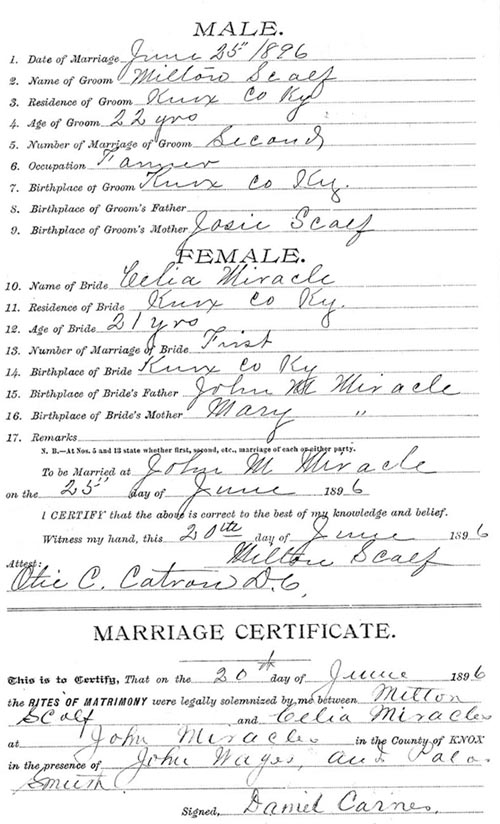 MALE.
1. Date of Marriage June 25" 1896
2. Name of Groom Milton Scalf
3. Residence of Groom Knox Co Ky
4. Age of Groom 22 yrs
5. Number of Marriage of Groom Second
6. Occupation Farmer
7. Birthplace of Groom Knox Co Ky.
8. Birthplace of Groom's Father
9. Birthplace of Groom's Mother Josie Scalf
FEMALE.
10. Name of Bride Celia Miracle
11. Residence of Bride Knox Co Ky.
12. Age of Bride 21 yrs
13. Number of Marriage of Bride First
14. Birthplace of Bride Knox Co Ky
15. Birthplace of Bride's Father John M Miracle
16. Birthplace of Bride's Mother Mary "
17. Remarks
N. B.—At Nos. 5 and 13 state whether first, second, etc., marriage of each or either party.
To be Married at John M Miracle
on the 25" day of June 1896
I CERTIFY that the above is correct to the best of my knowledge and belief.
Witness my hand, this 20th day of June 1896
Milton Scalf
Attest:
Otie C. Catron D.C.
MARRIAGE CERTIFICATE.
This is to Certify, That on the 20th day of June 1896
the RITES OF MATRIMONY were legally solemnized by me between Milton
Scalf and Celia Miracles
at John Miracles in the County of KNOX
in the presence of John Wages, and
Smith
Signed, Daniel Carnes.